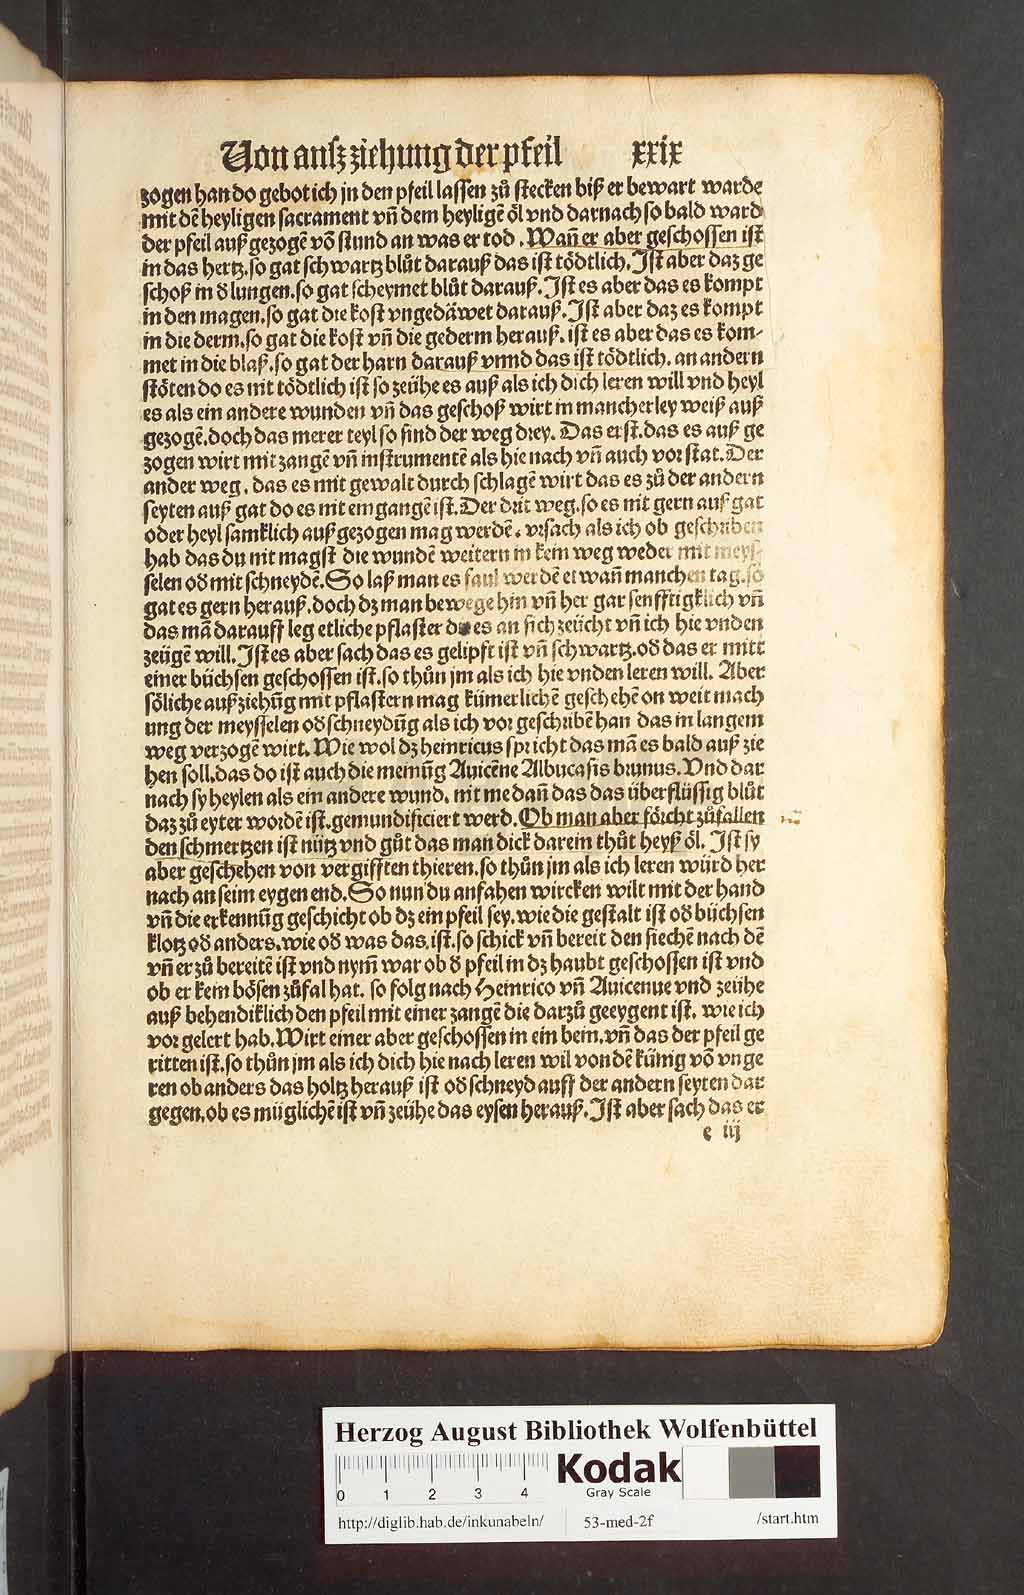 Von auſzziehung der pfeil xxix
zogen han do gebot ich jn den pfeil laſſen zů ſtecken biß er bewart warde
mit dẽ heyligen ſacrament vñ dem heyligẽ öl vnd darnach ſo bald ward
der pfeil auß gezogẽ võ ſtund an was er tod. Wañ er aber geſchoſſen iſt
in das hertz. ſo gat ſchwartz blůt darauß das iſt tödtlich. Iſt aber daz ge
ſchoß in d̕ lungen. ſo gat ſcheymet blůt darauß. Iſt es aber das es kompt
in den magen. ſo gat die koſt vngedäwet darauß. Iſt aber daz es kompt
in die derm. ſo gat die koſt vñ die gederm herauß. iſt es aber das es kom-
met in die blaß. ſo gat der harn darauß vnnd das iſt tödtlich. an andern
ſtöten do es nit tödtlich iſt ſo zeühe es auß als ich dich leren will vnd heyl
es als ein andere wunden vñ das geſchoß wirt in mancherley weiß auß
gezogẽ. doch das merer teyl ſo ſind der weg drey. Das erſt. das es auß ge
zogen wirt mit zangẽ vñ inſtrumentẽ als hie nach vñ auch vor ſtat. Der
ander weg. das es mit gewalt durch ſchlagẽ wirt das es zů der andern
ſeyten auß gat do es nit eingangẽ iſt. Der drit weg. ſo es nit gern auß gat
oder heyl ſamklich auß gezogen mag werdẽ. vrſach als ich ob geſchriben
hab das du nit magſt die wundẽ weitern in kein weg weder mit meyſ-
ſelen od̕ mit ſchneydẽ. So laß man es faul werdẽ etwañ manchen tag. ſo
gat es gern herauß. doch dz man bewege hin vñ her gar ſenfftigklich vñ
das mã darauff leg etliche pflaſter die es an ſich zeücht vñ ich hie vnden
zeügẽ will. Iſt es aber ſach das es gelipft iſt vñ ſchwartz. od̕ das er mitt
einer büchſen geſchoſſen iſt. ſo thůn jm als ich hie vnden leren will. Aber
ſöliche außziehũg mit pflaſtern mag kümerlichẽ geſchehẽ on weit mach
ung der meyſſelen od̕ ſchneydũg als ich vor geſchribẽ han das in langem
weg verzogẽ wirt. Wie wol dz heinricus ſpricht das mã es bald auß zie
hen ſoll. das do iſt auch die meinũg Auicẽne Albucaſis brunus. Vnd dar
nach ſy heylen als ein andere wund. nit me dañ das das überflüſſig blůt
daz zů eyter wordẽ iſt. gemundificiert werd. Ob man aber förcht zůfallen
den ſchmertzen iſt nütz vnd gůt das man dick darein thůt heyß öl. Iſt ſy
aber geſchehen von vergifften thieren. ſo thůn jm als ich leren würd her
nach an ſeim eygen end. So nun du anfahen wircken wilt mit der hand
vñ die erkennũg geſchicht ob dz ein pfeil ſey. wie die geſtalt iſt od̕ büchſen
klotz od̕ anders. wie od̕ was das. iſt. ſo ſchick vñ bereit den ſiechẽ nach dẽ
vñ er zů bereitẽ iſt vnd nym̃ war ob d̕ pfeil in dz haubt geſchoſſen iſt vnd
ob er kein böſen zůfal hat. ſo folg nach Heinrico vñ Auicenne vnd zeühe
auß behendiklich den pfeil mit einer zangẽ die darzů geeygent iſt. wie ich
vor gelert hab. Wirt einer aber geſchoſſen in ein bein. vñ das der pfeil ge
ritten iſt. ſo thůn jm als ich dich hie nach leren wil von dẽ künig võ vnge
ren ob anders das holtz herauß iſt od̕ ſchneyd auff der andern ſeyten dar
gegen. ob es müglichẽ iſt vñ zeühe das eyſen herauß. Iſt aber ſach das er
e iij
Herzog August Bibliothek Wolfenbüttel
0 1 2 3 4
Kodak
Gray Scale
http://diglib.hab.de/inkunabeln/ 53-med-2f /start.htm